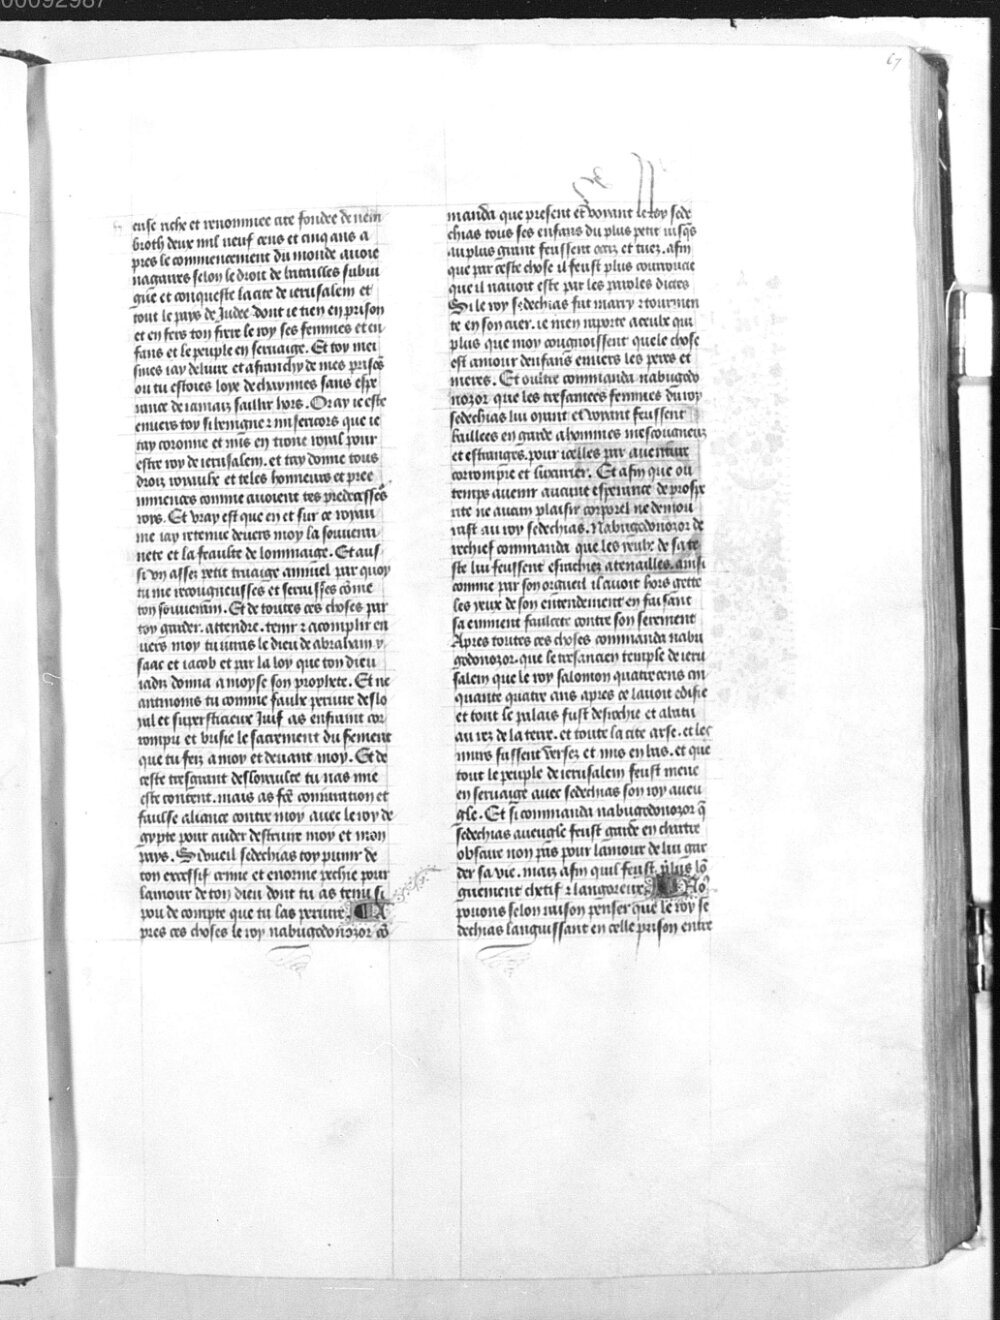 00092987
67
euse riche et renommee cite fondee de nem
broth deux mil neuf cens et cinq ans a
pres le commencement du monde auoie
nagaires selon le droit de batailles subiu
gue et conqueste la cite de ierusalem et
tout le pays de Judee dont ie tien en prison
et en fers ton frere le roy ses femmes et en
fans et le peuple en seruaige. Et toy mei
smes iay deliure et afranchy de mes prisōs
ou tu estoies loye de chaynnes sans espe
rance de iamaiz saillir hors. Or ay ie este
enuers toy si benigne ⁊ misericors que ie
tay coronne et mis en trone roial pour
estre roy de ierusalem. et tay donne tous
droiz roiaulx et teles honneurs et pree
minences comme auoient tes predecessēs
roys. Et vray est que en et sur ce roiau
me iay retenue deuers moy la souuerai
nete et la feaulte de lommaige. Et aus
si vn assez petit truaige annuel par quoy
tu me recougneusses et seruisses cōme
ton souuerain. Et de toutes ces choses par
toy garder. attendre. tenir ⁊ acomplir en
uers moy tu iuras le dieu de abraham y
saac et iacob et par la loy que ton dieu
iadiz donna a moyse son prophete. Et ne
antmoins tu comme faulx periure desloi
ial et supersticieux Juif as enfraint cor
rompu et brisie le sacrement du serment
que tu feiz a moy et deuant moy. Et de
ceste tresgrant desloiaulte tu nas mie
este content. mais as fēe coniuration et
faulse aliance contre moy auec le roy de
gypte pour cuider destruire moy et mon
pays. Si vueil sedechias toy punir de
ton excessif crime et enorme pechie pour
lamour de ton dieu dont tu as tenu si
pou de compte que tu las periure. A
pres ces choses le roy nabugodonozor cō
manda que present et voyant le roy sede
chias tous ses enfans du plus petit iusq̄s
au plus grant feussent occiz et tuez. afin
que par ceste chose il feust plus courroucie
que il nauoit este par les paroles dictes
Si le roy sedechias fut marry ⁊ tourmen
te en son cuer. ie men raporte a ceulx qui
plus que moy congnoissent quele chose
est amour denfans enuers les peres et
meres. Et oultre commanda nabugodo
nozor que les tresancees femmes du roy
sedechias lui oyant et voyant feussent
baillees en garde a hommes mescongneuz
et estranges. pour icelles par auenture
corrompre et luxurier. Et afin que ou
temps auenir aucune esperance de prospe
rite ne aucun plaisir corporel ne demou
rast au roy sedechias. Nabugodonozor de
rechief commanda que les yeulx de sa te
ste lui feussent esrachiez a tenailles. ainsi
comme par son orgueil il auoit hors gette
les yeux de son entendement en faisant
sciemment faulcete contre son serement
Apres toutes ces choses commanda nabu
godonozor. que le tresancien temple de ieru
salem que le roy salomon quatrecens cin
quante quatre ans apres ce lauoit edifie
et tout le palais fust desrochie et abatu
au rez de la terre. et toute la cite arse. et les
murs fussent versez et mis en bas. et que
tout le peuple de ierusalem feust mene
en seruaige auec sedechias son roy aueu
gle. Et si commanda nabugodonozor q̄
sedechias aueugle feust garde en chartre
obscure non pas pour lamour de lui gar
der sa vie. maiz afin quil feust plus lō
guement chetif ⁊ langoreux. Nō
pouons selon raison penser que le roy se
dechias languissant en celle prison entre